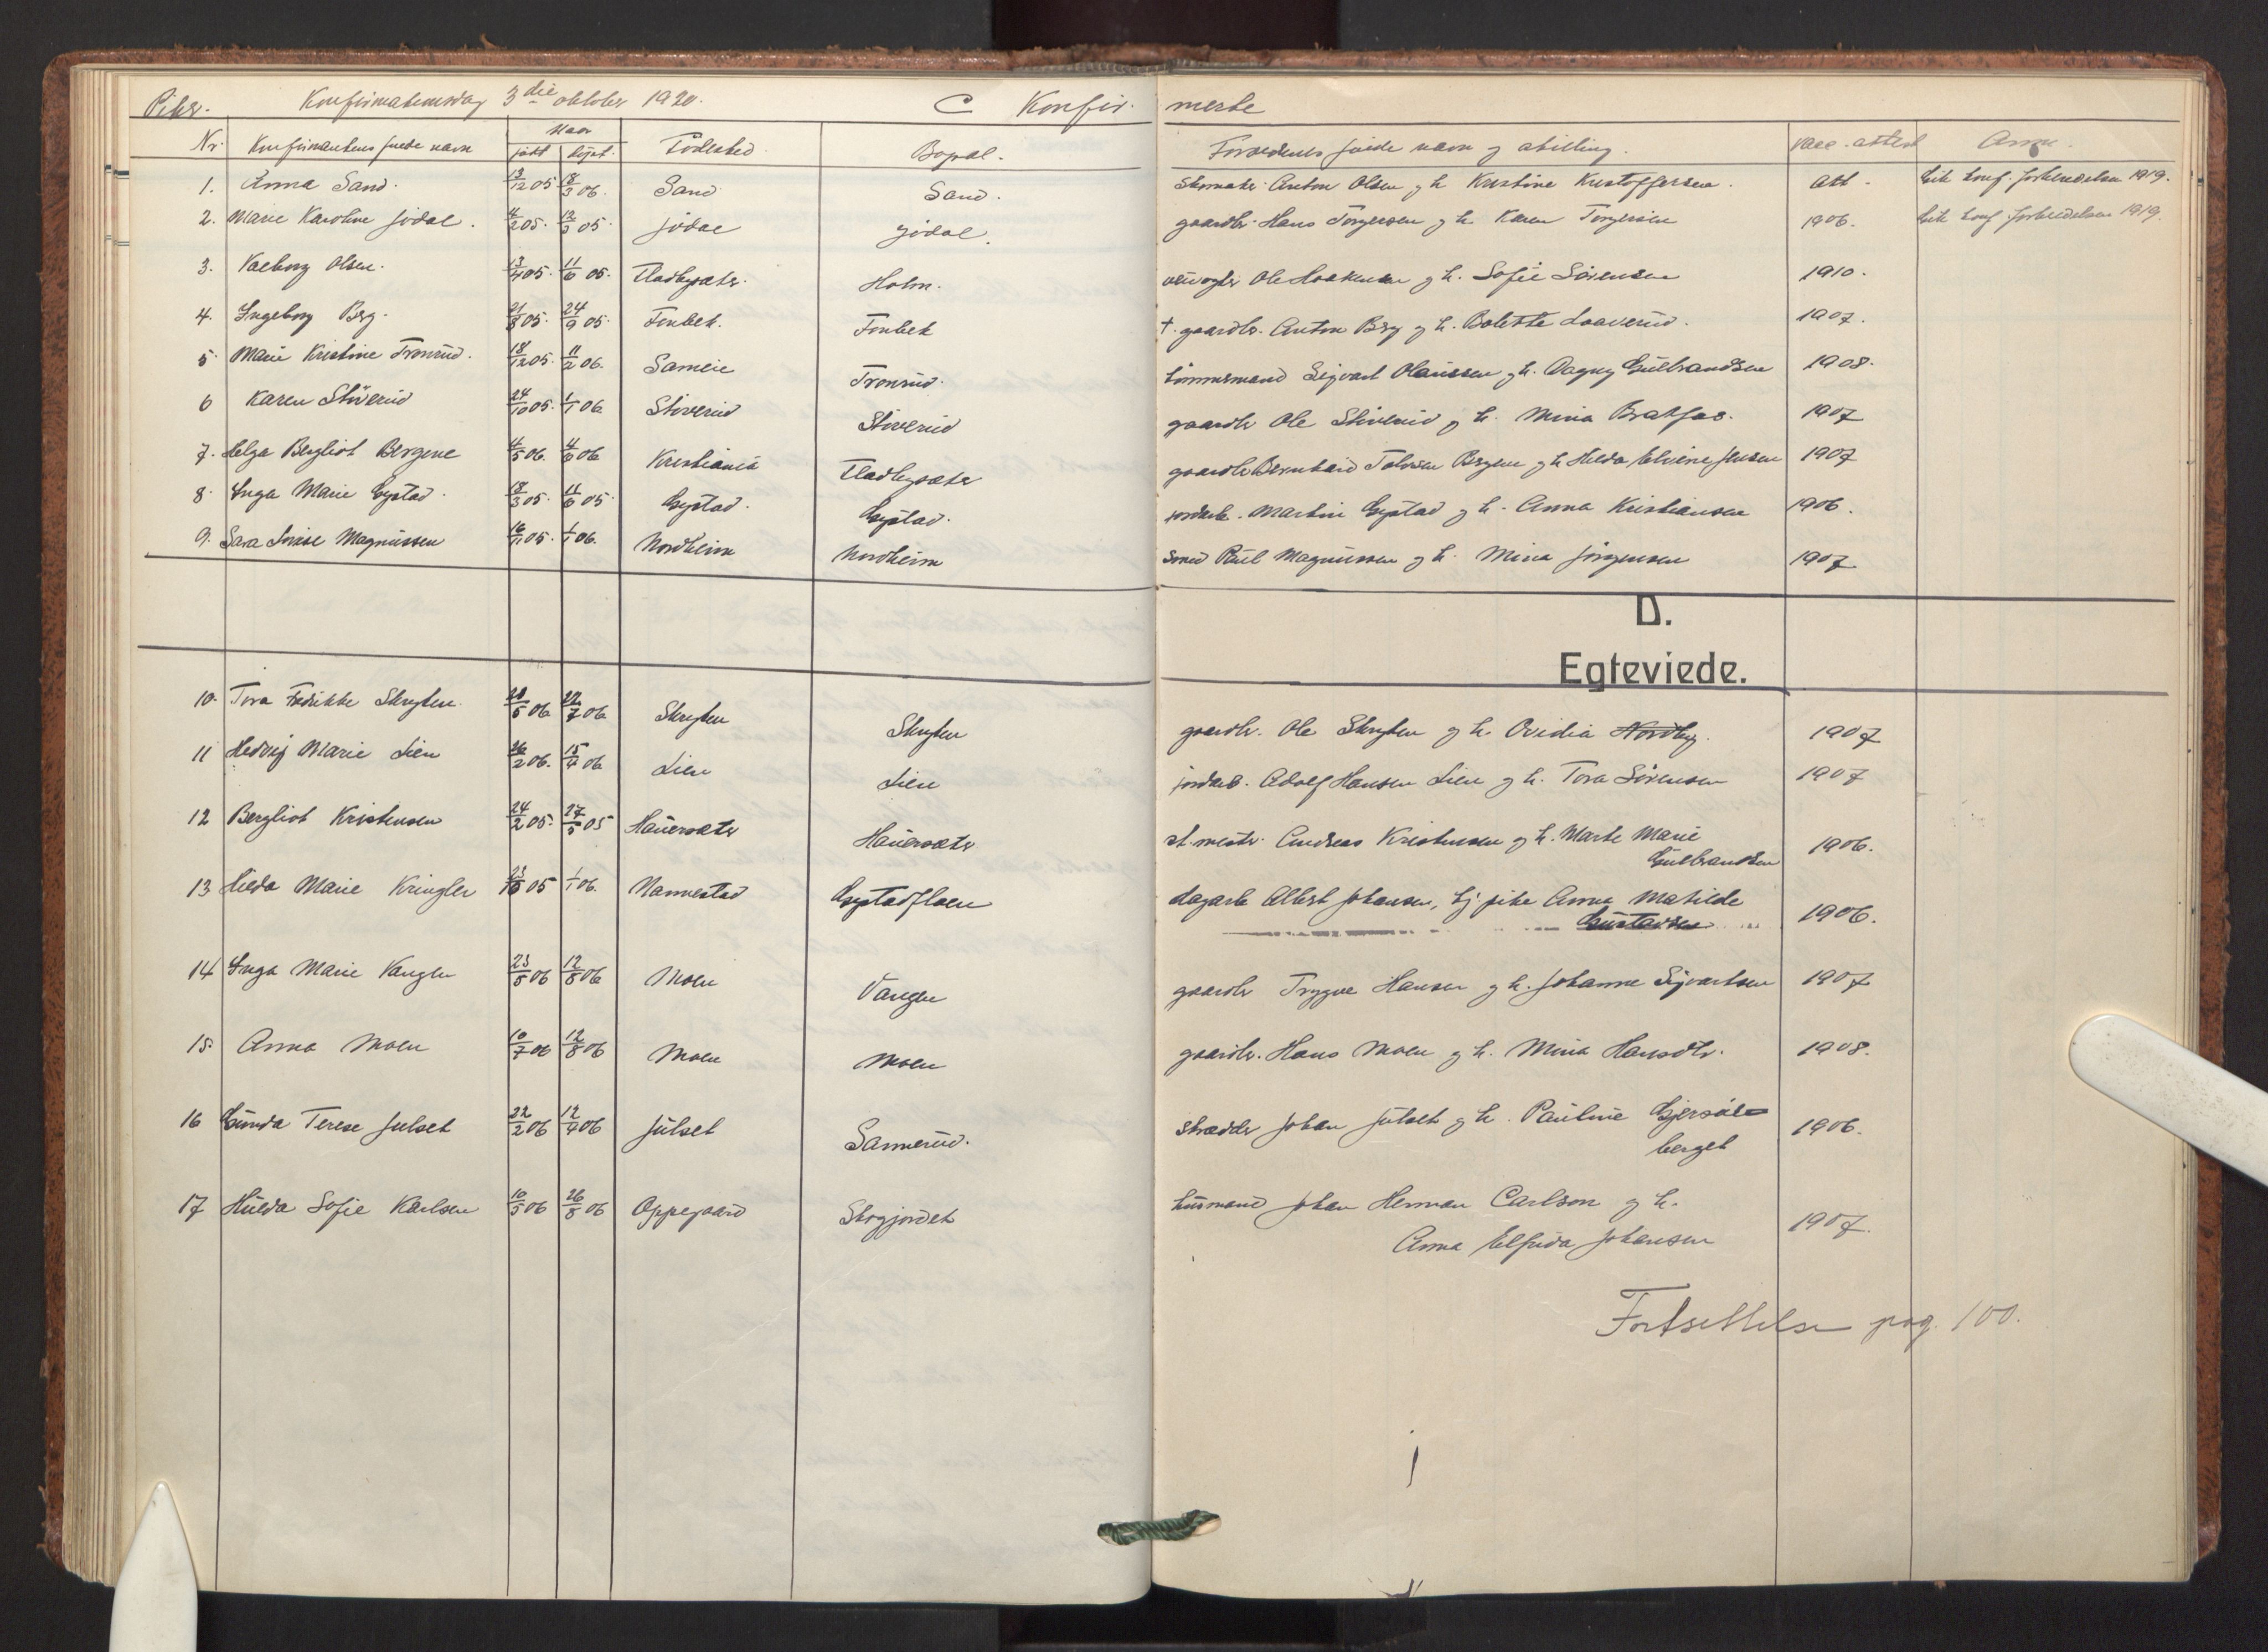 Piker. Konfirmationsdag 3die oktober 1920. C Konfir- merte
Nr. Konfirmantens fulde navn Naar født døpt. Fødested. Bopæl. Forældrenes fulde navn og stilling. vacc. attest Anm.
1. Anna Sand. 13/12 05 18/3 06. Sand Sand. Skomaker Anton Olsen g h Kristine Kristoffersen. att. konf. forberedelsen 1919.
2. Marie Karoline Jødal. 4/2 05. 12/3 05. Jødal Jødal. gaardbr. Hans Torgersen g h. Karen Torgersen 1906. konf. forberedelsen 1919.
3. Valborg Olsen. 13/4 05. 11/6 05. Fladbysæter. Holm. Ole Haakensen g h. Sofie Sørensen 1910.
4. Ingeborg Berg. 21/8 05. 24/9 05. Fonbek. Fonbek † gaardbr. Anton Berg g h. Bolette Laaverud. 1907.
5. Marie Kristine Tronrud. 18/12 05. 11/2 06. Sameie Tronrud. tømmermand Sigvart Olaussen g h. Dagny Gulbrandsen 1908.
6 Karen Støverud 24/10 05. 1/1 06. Støverud Støverud gaardbr Ole Støverud g h. Mina Bratfos. 1907
7. Helga Bergliot Bergene 4/5 06. 4/6 06 Kristiania Fladbysæter gaardbr Bernhard Tolvsen Bergene g h Hilda Elvine Jensen 1907
8. Inga Marie Gystad. 18/3 05. 11/6 05. Gystad. Gystad. jordarb. Martin Gystad g h. Anna Kristiansen 1906.
9. Sara Lovise Magnussen 16/11 05. 1/1 06. Nordheim Nordheim smed Paul Magnussen g h. Mina Jørgensen 1907.
D.
Egteviede.
10. Tora Fredrikke Skryten. 28/5 06 22/7 06 Skryten Skryten gaardbr. Ole Skryten g h. Ovidia Nordby. 1907
11 Hedvig Marie Lien 26/2 06. 15/4 06 Lien Lien jordarb. Adolf Hansen Lien g h. Tora Sørensen 1907
12 Bergliot Kristensen 24/2 05. 27/5 05 Hauersæter Hauersæter st. mester Andreas Kristensen g h. Marte Marie
Gulbrandsen 1906.
13 Hilda Marie Kringler 23/10 05 1/1 06. Nannestad Gystadfloen dagarb Albert Johansen, pike Anna Matilde
Gustavsen 1906.
14 Inga Marie Vangen 23/5 06 12/8 06 Moen Vangen gaardbr Trygve Hansen g h. Johanne Sigvartsen 1907
15. Anna Moen 10/7 06 12/8 06 Moen Moen gaardbr. Hans Moen g h. Mina Hansdtr. 1908.
16 Gunda Terese Julset 22/2 06 12/4 06 Julset Sannerud. skrædder Johan Julset g h. Pauline Gjersøl-
berget 1906.
17 Hulda Sofie Karlsen 10/5 06 26/8 06 Oppegaard Skogjordet husmand Johan Herman Carlson g h.
Anna Elfrida Johansen 1907.
Fortsettelse pag. 100.